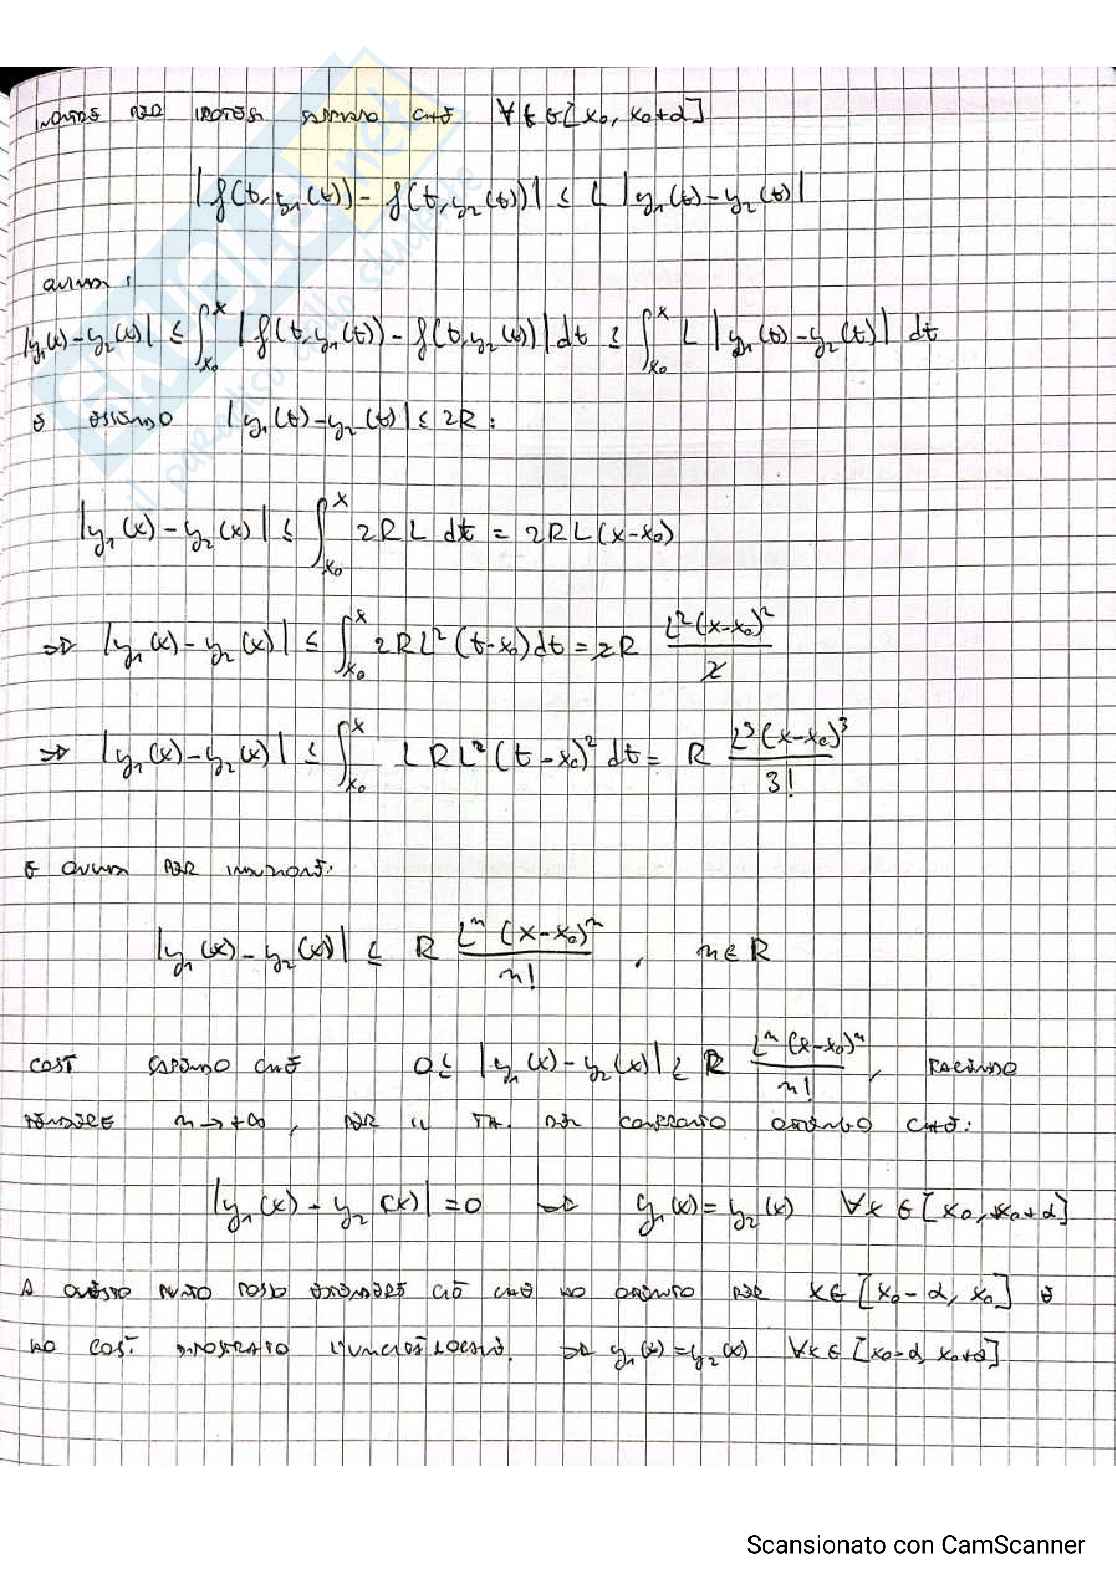 INOLTRE PER IPOTESI SAPPIAMO CHE ∀ t ∈ [x₀, x₀+α]
|f(t, y₁(t)) − f(t, y₂(t))| ≤ L |y₁(t) − y₂(t)|
QUINDI :
|y₁(x) − y₂(x)| ≤ ∫_{x₀}^{x} |f(t, y₁(t)) − f(t, y₂(t))| dt ≤ ∫_{x₀}^{x} L |y₁(t) − y₂(t)| dt
E ESSENDO |y₁(t) − y₂(t)| ≤ 2R :
|y₁(x) − y₂(x)| ≤ ∫_{x₀}^{x} 2RL dt = 2RL(x−x₀)
⇒ |y₁(x) − y₂(x)| ≤ ∫_{x₀}^{x} 2RL²(t−x₀) dt = 2R L²(x−x₀)²/2
⇒ |y₁(x) − y₂(x)| ≤ ∫_{x₀}^{x} LRL²(t−x₀)² dt = R L³(x−x₀)³/3!
E QUINDI PER INDUZIONE:
|y₁(x) − y₂(x)| ≤ R Lⁿ(x−x₀)ⁿ/n! , n ∈ R
COSÌ SAPENDO CHE 0 ≤ |y₁(x) − y₂(x)| ≤ R Lⁿ(x−x₀)ⁿ/n! , FACENDO
TENDERE n → +∞, PER IL TH. DEL CONFRONTO OTTENGO CHE:
|y₁(x) − y₂(x)| = 0 ⇒ y₁(x) = y₂(x) ∀x ∈ [x₀, x₀+α]
A QUESTO PUNTO POSSO ESTENDERE CIÒ CHE HO OTTENUTO PER x ∈ [x₀−α, x₀] E
HO COSÌ DIMOSTRATO L'UNICITÀ LOCALE. ⇒ y₁(x) = y₂(x) ∀x ∈ [x₀−α, x₀+α]
Scansionato con CamScanner